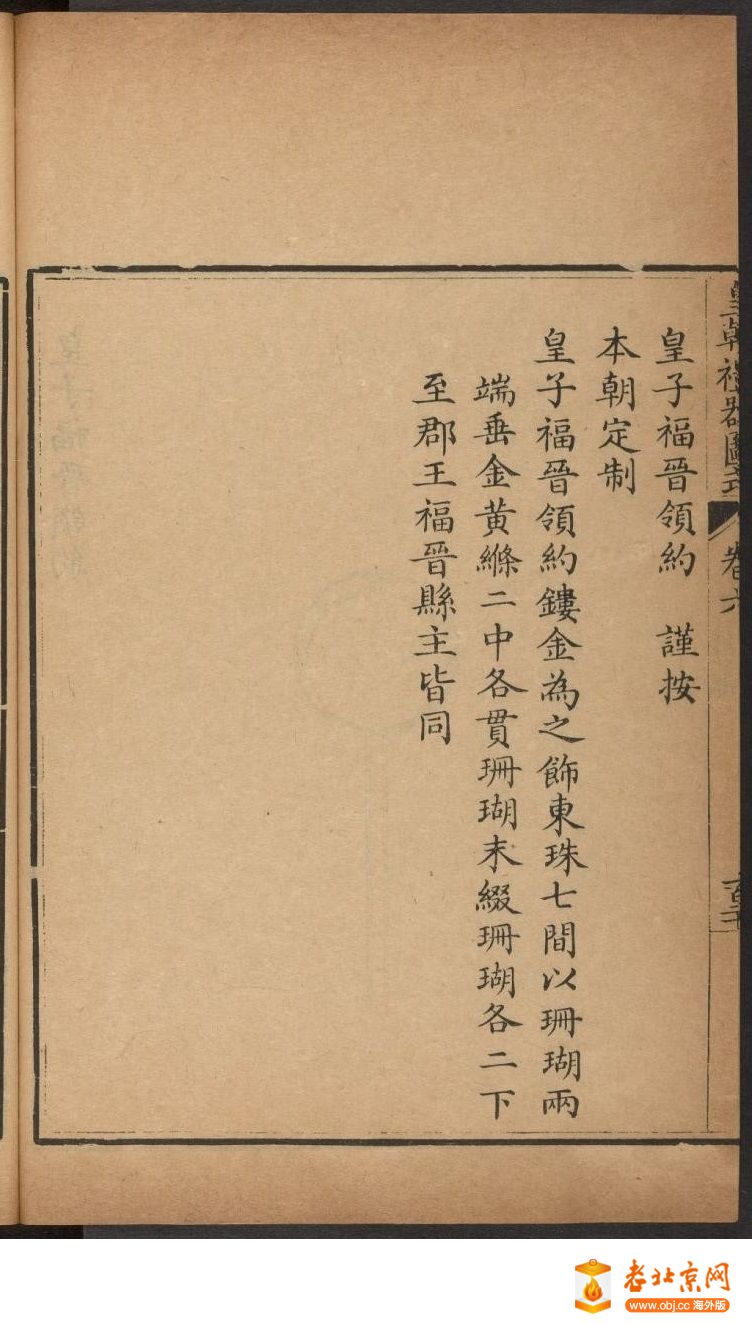 皇朝禮器圖式
卷六
皇子福晉領約　謹按
本朝定制
皇子福晉領約鏤金為之飾東珠七間以珊瑚兩
端垂金黃絛二中各貫珊瑚末綴珊瑚各二下
至郡王福晉縣主皆同
老北京网
www.obj.cc 海外版